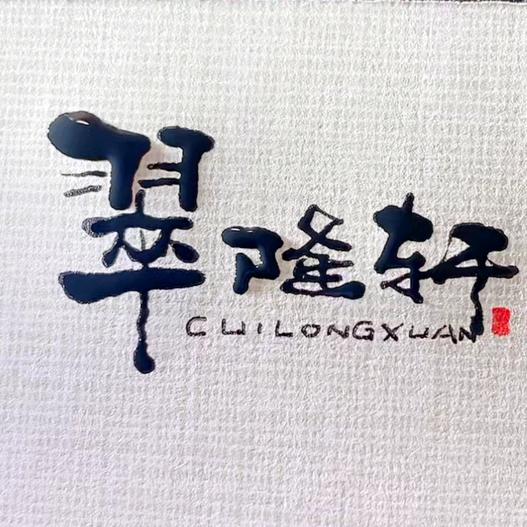 翠隆轩
CUILONGXUAN